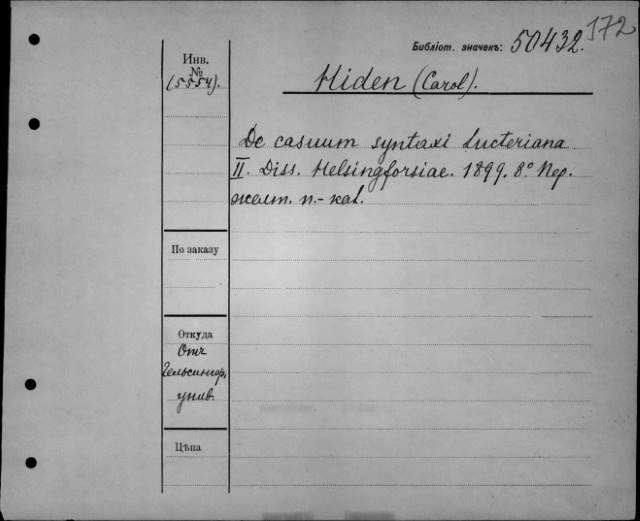 172
Библіот. значекъ: 50432.
Инв.
№
(5554).
Hiden (Carol).
De casuum syntaxi Lucteriana
II. Diss. Helsingforsiae. 1899. 8°. Пер.
желт. п.-кал.
По заказу
Откуда
Отъ
Гельсингф.
унив.
Цѣна